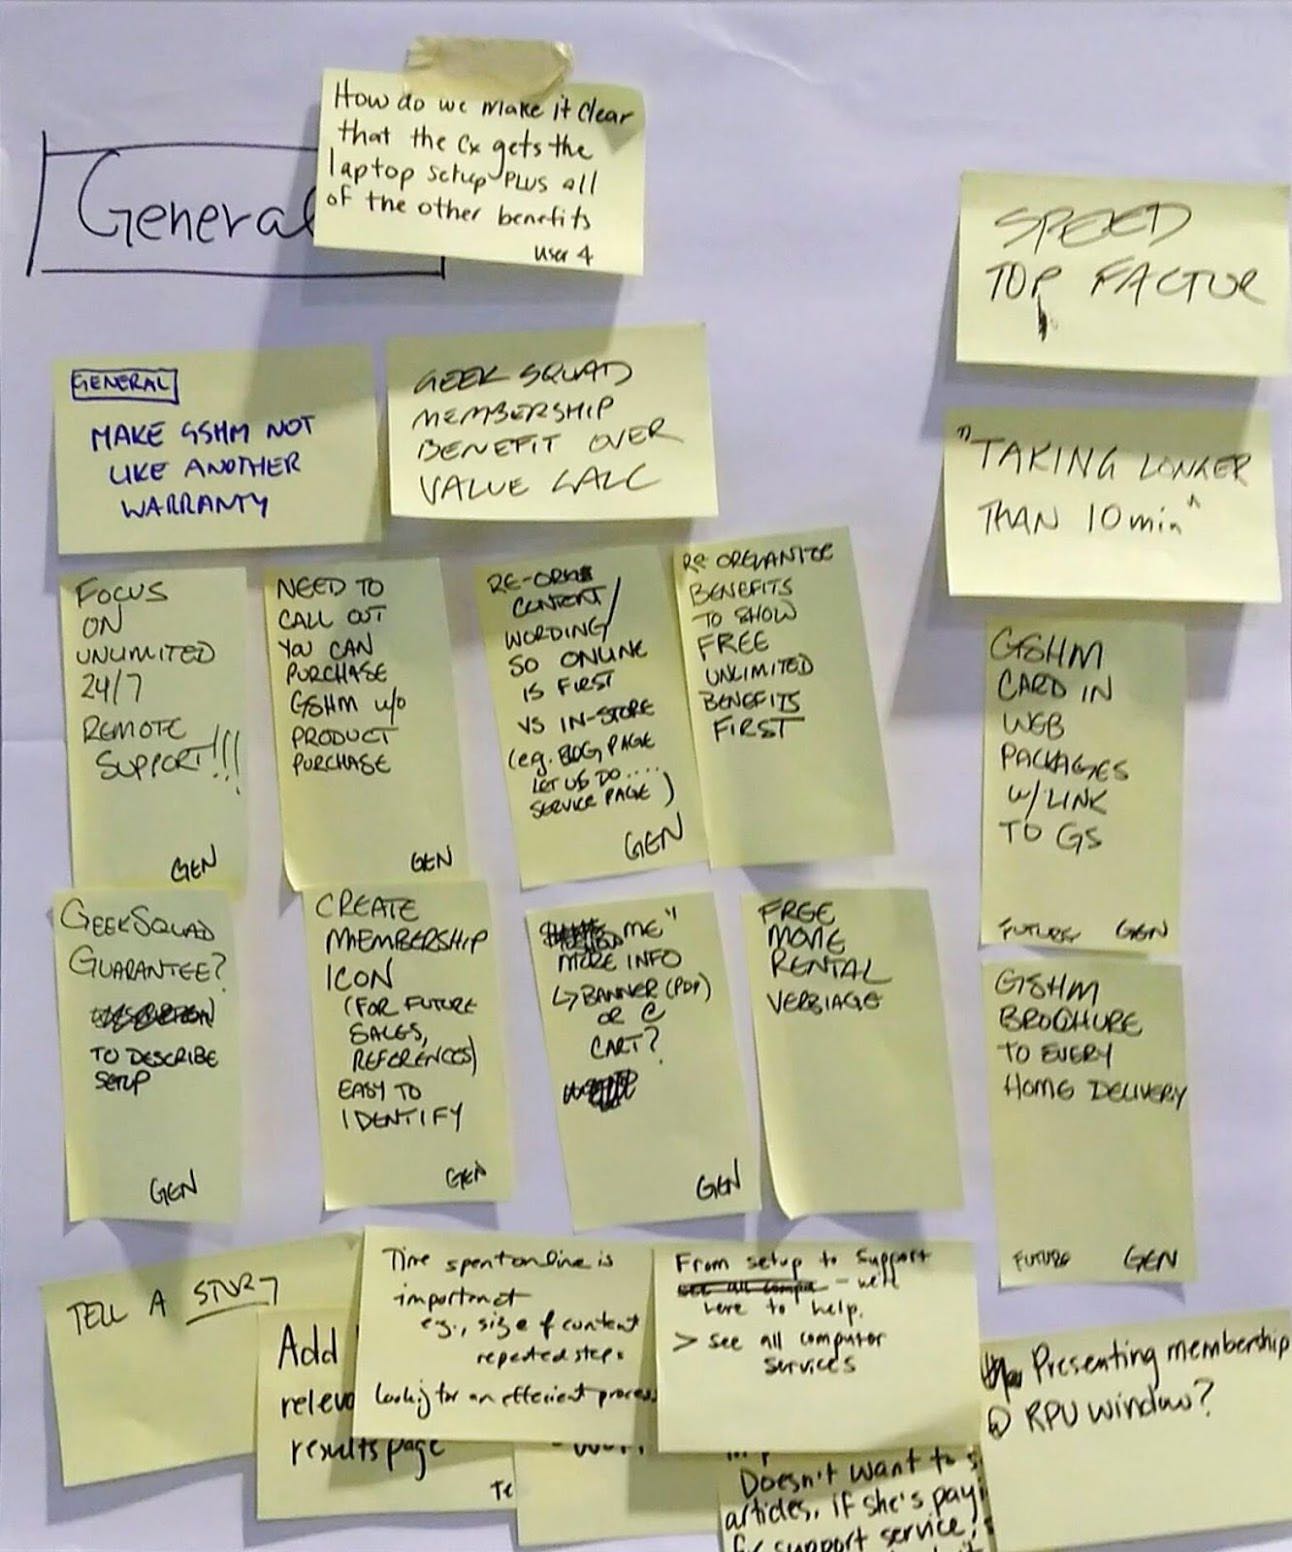 How do we make it clear
that the Cx gets the
laptop setup PLUS all
of the other benefits
User 4
General
SPEED
TOP FACTUR
GENERAL
MAKE GSHM NOT
LIKE ANOTHER
WARRANTY
GEEK SQUAD
MEMBERSHIP
BENEFIT OVER
VALUE CALC
"TAKING LONGER
THAN 10 min"
FOCUS
ON
UNLIMITED
24/7
REMOTE
SUPPORT!!!
GEN
NEED TO
CALL OUT
YOU CAN
PURCHASE
GSHM w/o
PRODUCT
PURCHASE
GEN
RE-ORG
CONTENT/
WORDING/
SO ONLINE
IS FIRST
VS IN-STORE
(eg. BLOG, PAGE
LET US DO....
SERVICE PAGE)
GEN
RE ORGANIZE
BENEFITS
TO SHOW
FREE
UNLIMITED
BENEFITS
FIRST
GSHM
CARD IN
WEB
PACKAGES
W/ LINK
TO GS
FUTURE GEN
GEEKSQUAD
GUARANTEE?
TO DESCRIBE
SETUP
GEN
CREATE
MEMBERSHIP
ICON
(FOR FUTURE
SALES,
REFERENCES)
EASY TO
IDENTIFY
GEN
ME"
MORE INFO
↳ BANNER (PDP)
OR @
CART?
GEN
FREE
MOVIE
RENTAL
VERBIAGE
GSHM
BROCHURE
TO EVERY
HOME DELIVERY
FUTURE GEN
TELL A STORY
Add
results page
Time spent online is
important
eg., size of content
repeated steps
Looking for an efficient process
From setup to support
see all compu - we'll
here to help.
> see all computer
services
Presenting membership
@ RPU window?
Doesn't want to
articles, if she's payi
support service,